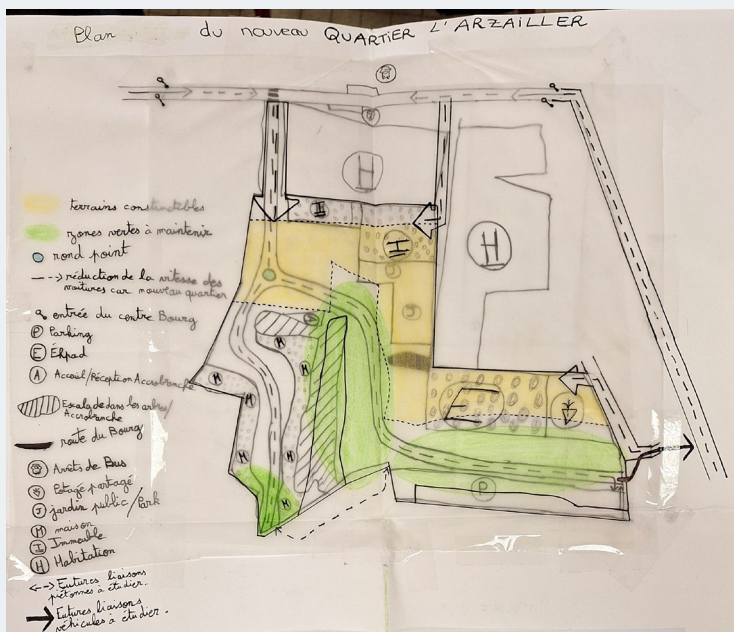 Plan du nouveau QUARTIER L'ARZAILLER
H
I
H
I
H
J
M
M
M
M
M
M
M
E
P
terrains constructibles
zones vertes à maintenir
rond point
réduction de la vitesse des
voitures car nouveau quartier
entrée du centre Bourg
P Parking
E Éhpad
A Accueil/Réception Accrobranche
Escalade dans les arbres/
Accrobranche
route du Bourg
Arrêts de Bus
Potagé partagé
J jardin public/Park
M maison
I Immeuble
H Habitation
Futures liaisons
piétonnes à étudier.
Futures liaisons
véhicules à étudier.